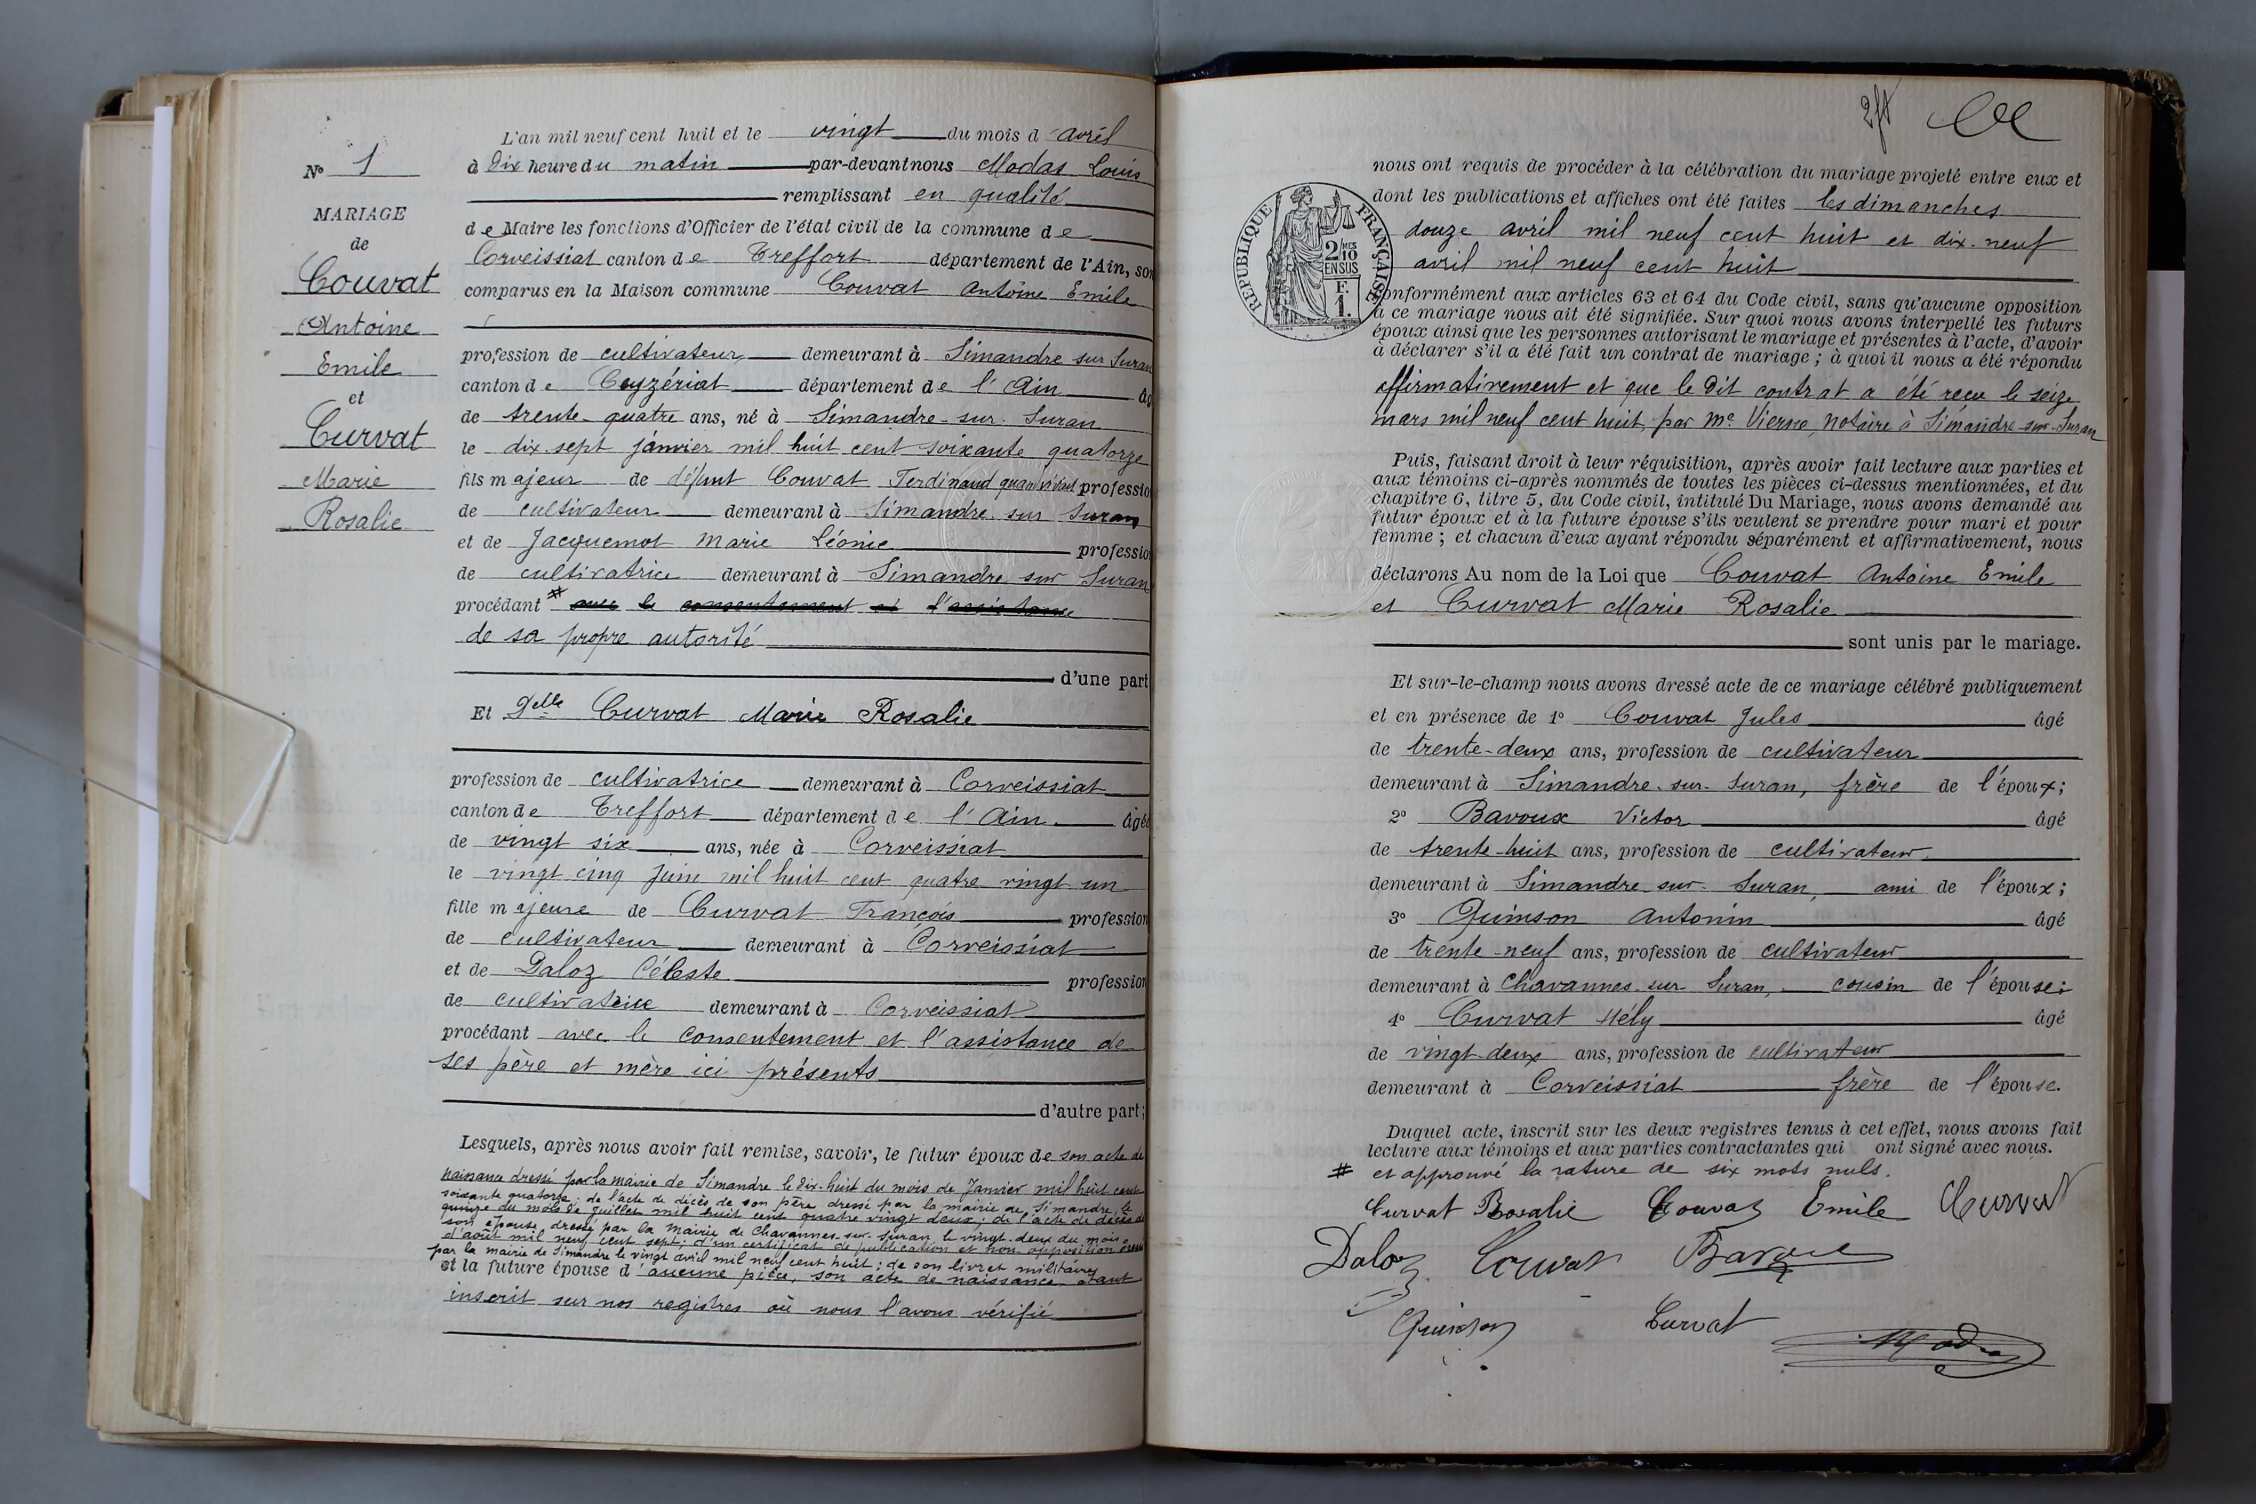 L'an mil neuf cent huit et le vingt du mois d'avril
à dix heure du matin par-devant nous Modas Louis
N° 1
remplissant en qualité
MARIAGE
de Maire les fonctions d'Officier de l'état civil de la commune de
de
Corveissiat canton de Treffort département de l'Ain, son
Couvat
comparus en la Maison commune Couvat Antoine Emile
Antoine
Emile
profession de cultivateur demeurant à Simandre sur Suran
canton de Ceyzériat département de l'Ain âg
et
de trente quatre ans, né à Simandre-sur-Suran
Curvat
le dix sept janvier mil huit cent soixante quatorze
Marie
fils majeur de défunt Couvat Ferdinand quand vivant professio
Rosalie
de cultivateur demeurant à Simandre sur Suran
et de Jacquemot Marie Léonie profession
de cultivatrice demeurant à Simandre sur Suran
procédant # avec le consentement et l'assistance
de sa propre autorité
d'une part
Et Delle Curvat Marie Rosalie
profession de cultivatrice demeurant à Corveissiat
canton de Treffort département de l'Ain âgée
de vingt six ans, née à Corveissiat
le vingt cinq juin mil huit cent quatre vingt un
fille majeure de Curvat François profession
de cultivateur demeurant à Corveissiat
et de Daloz Céleste profession
de cultivatrice demeurant à Corveissiat
procédant avec le consentement et l'assistance de
ses père et mère ici présents
d'autre part;
Lesquels, après nous avoir fait remise, savoir, le futur époux de son acte de
naissance dressé par la mairie de Simandre le dix-huit du mois de Janvier mil huit cent
soixante quatorze; de l'acte de décès de son père dressé par la mairie de Simandre le
quinze du mois de juillet mil huit cent quatre vingt deux; de l'acte de décès de
son épouse dressé par la mairie de Chavannes-sur-Suran le vingt-deux du mois
d'août mil neuf cent sept; d'un certificat de publication et non opposition
par la mairie de Simandre le vingt avril mil neuf cent huit; de son livret militaire
et la future épouse d'aucune pièce, son acte de naissance étant
inscrit sur nos registres où nous l'avons vérifié
nous ont requis de procéder à la célébration du mariage projeté entre eux et
dont les publications et affiches ont été faites les dimanches
douze avril mil neuf cent huit et dix-neuf
avril mil neuf cent huit
RÉPUBLIQUE FRANÇAISE
2/10 MES
EN SUS
F.
1.
conformément aux articles 63 et 64 du Code civil, sans qu'aucune opposition
à ce mariage nous ait été signifiée. Sur quoi nous avons interpellé les futurs
époux ainsi que les personnes autorisant le mariage et présentes à l'acte, d'avoir
à déclarer s'il a été fait un contrat de mariage; à quoi il nous a été répondu
affirmativement et que le dit contrat a été reçu le seize
mars mil neuf cent huit, par Me Vierne, notaire à Simandre-sur-Suran
Puis, faisant droit à leur réquisition, après avoir fait lecture aux parties et
aux témoins ci-après nommés de toutes les pièces ci-dessus mentionnées, et du
chapitre 6, titre 5, du Code civil, intitulé Du Mariage, nous avons demandé au
futur époux et à la future épouse s'ils veulent se prendre pour mari et pour
femme; et chacun d'eux ayant répondu séparément et affirmativement, nous
déclarons Au nom de la Loi que Couvat Antoine Emile
et Curvat Marie Rosalie
sont unis par le mariage.
Et sur-le-champ nous avons dressé acte de ce mariage célébré publiquement
et en présence de 1° Couvat Jules âgé
de trente-deux ans, profession de cultivateur
demeurant à Simandre-sur-Suran, frère de l'époux;
2° Bavoux Victor âgé
de trente-huit ans, profession de cultivateur
demeurant à Simandre-sur-Suran, ami de l'époux;
3° Quinson Antonin âgé
de trente-neuf ans, profession de cultivateur
demeurant à Chavannes-sur-Suran, cousin de l'épouse;
4° Curvat Hély âgé
de vingt-deux ans, profession de cultivateur
demeurant à Corveissiat frère de l'épouse.
Duquel acte, inscrit sur les deux registres tenus à cet effet, nous avons fait
lecture aux témoins et aux parties contractantes qui ont signé avec nous.
# et approuvé la rature de six mots nuls.
Curvat Rosalie Couvat Emile Curvat
Daloz Couvat Bavoux
Quinson Curvat
Modas